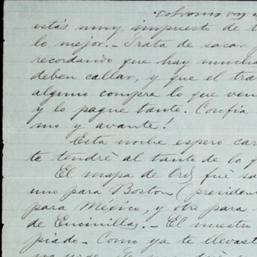 estás muy impuesto de t
lo mejor.- Trata de sacar
recordando que hay mucha
deben callar, y que el tra
alguno compre lo que ven
y lo pague tanto. Confia
mo y avante!
Esta noche espero car
te tendré al tanto de lo
El mapa de tres fué sa
uno para Boston (presiden
para México, y otro para
de Encinillas.- El nuestro
piado.- Como ya te llevast